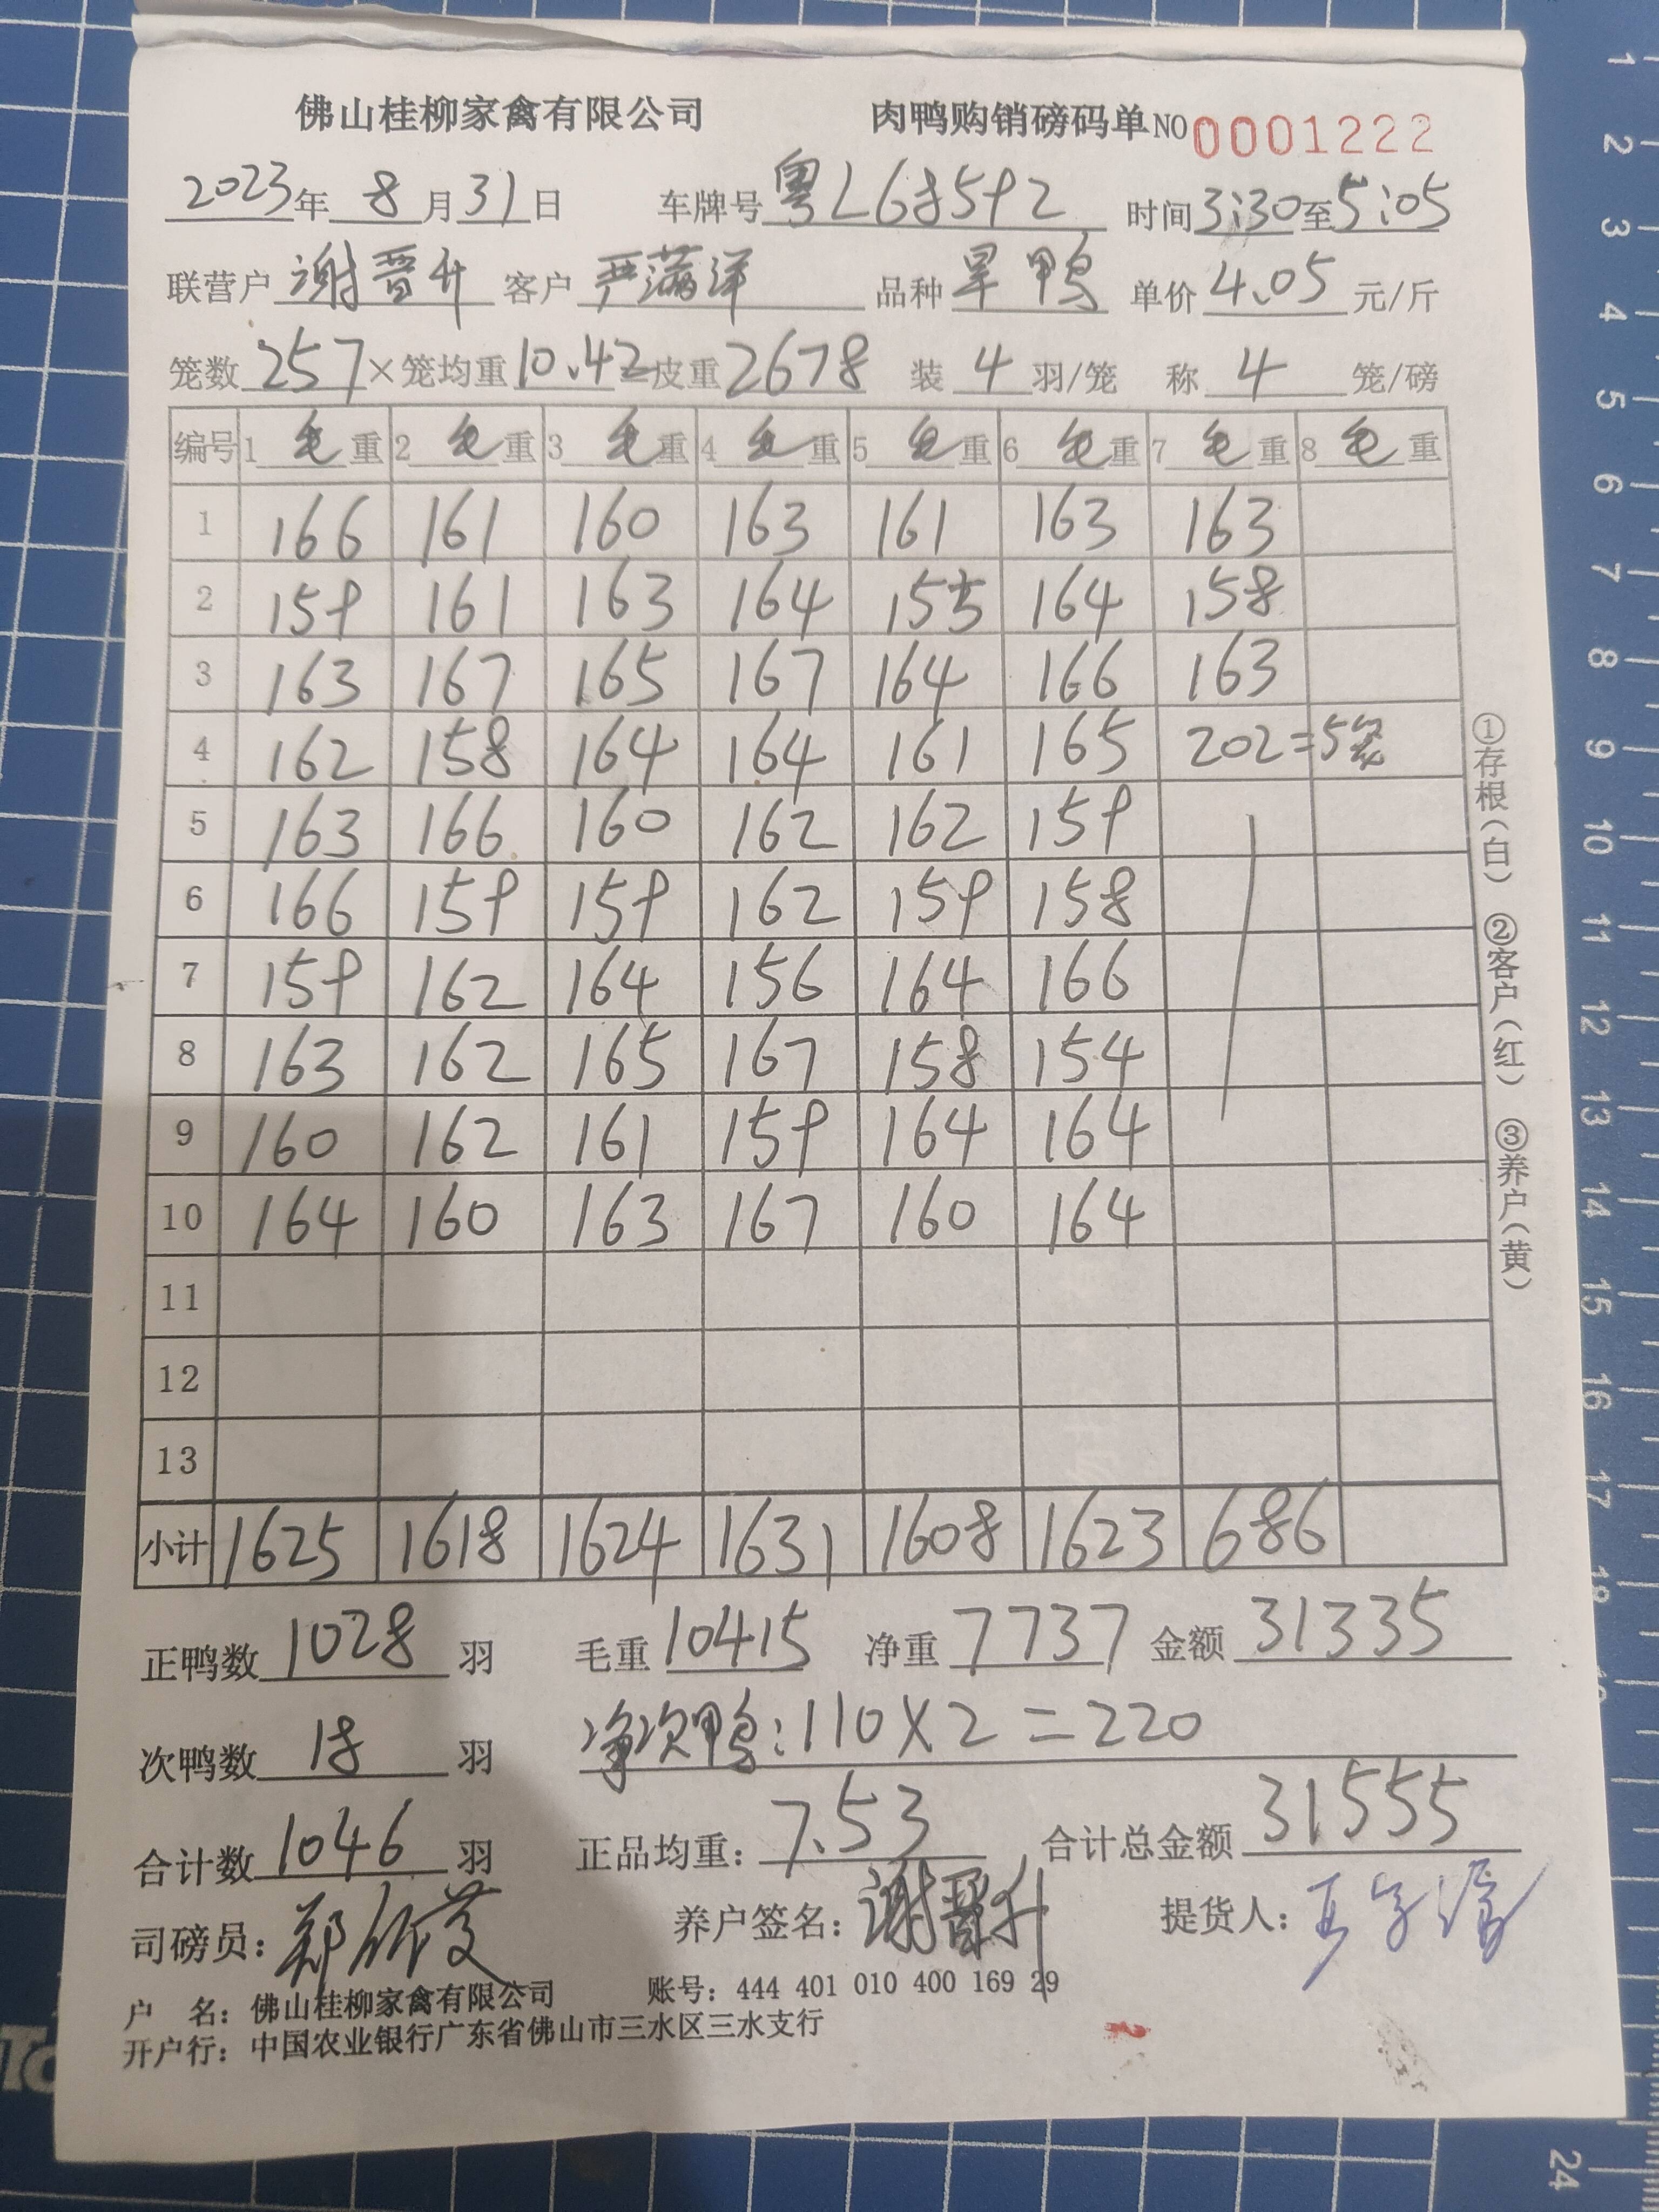 佛山桂柳家禽有限公司 肉鸭购销磅码单NO 0001222
2023年 8月31日 车牌号 粤L68592 时间3:30至5:05
联营户 谢晋升 客户 严满洋 品种 旱鸭 单价 4.05 元/斤
笼数 257 ×笼均重 10.42 皮重 2678 装 4 羽/笼 称 4 笼/磅
编号 1毛重 2毛重 3毛重 4毛重 5毛重 6毛重 7毛重 8毛重
1 166 161 160 163 161 163 163
2 159 161 163 164 155 164 158
3 163 167 165 167 164 166 163
4 162 158 164 164 161 165 202=5笼
5 163 166 160 162 162 159
6 166 159 159 162 159 158
7 159 162 164 156 164 166
8 163 162 165 167 158 154
9 160 162 161 159 164 164
10 164 160 163 167 160 164
11
12
13
小计 1625 1618 1624 1631 1608 1623 686
①存根(白) ②客户(红) ③养户(黄)
正鸭数 1028 羽 毛重 10415 净重 7737 金额 31335
次鸭数 18 羽 净次鸭:110×2=220
合计数 1046 羽 正品均重: 7.53 合计总金额 31555
司磅员: 郑 养户签名: 谢晋升 提货人:
户 名: 佛山桂柳家禽有限公司 账号: 444 401 010 400 169 29
开户行: 中国农业银行广东省佛山市三水区三水支行
1
2
3
4
5
6
7
8
9
10
11
12
13
14
15
16
17
18
24